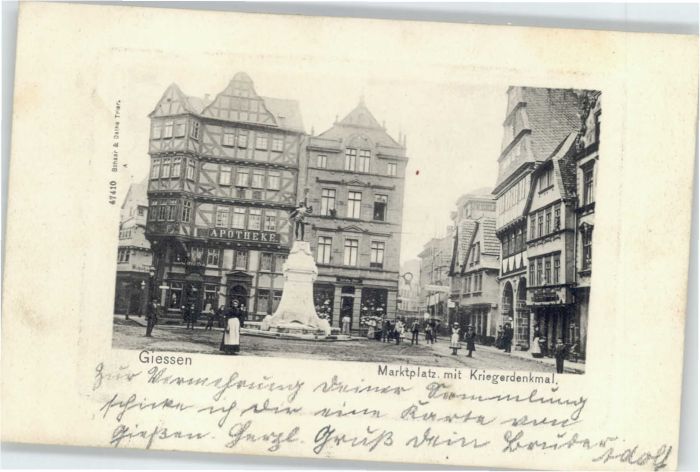 47410 Schaar & Dathe Trier.
APOTHEKE
Giessen
Marktplatz mit Kriegerdenkmal.
Zur Vermehrung deiner Sammlung
schicke ich dir eine Karte von
Gießen. Herzl. Gruß dein Bruder
Adolf